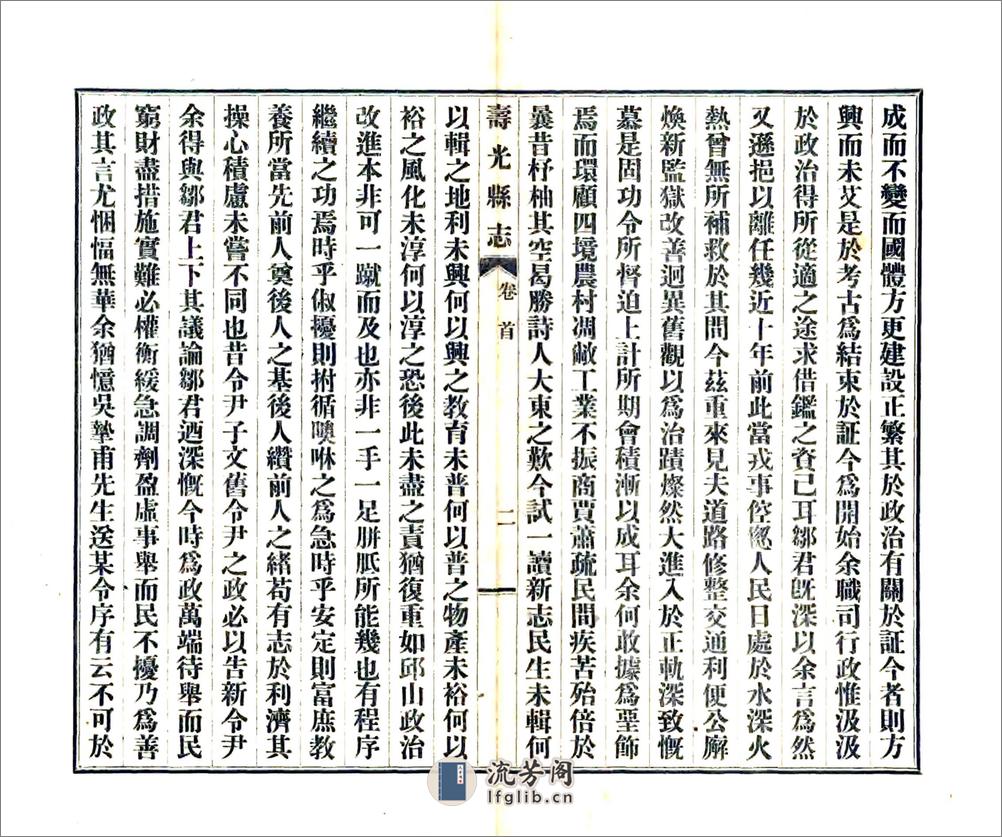 成而不變而國體方更建設正繁其於政治有關於証今者則方
興而未艾是於考古爲結束於証今爲開始余職司行政惟汲汲
於政治得所從適之途求借鑑之資已耳鄒君旣深以余言爲然
又遜挹以離任幾近十年前此當戎事倥傯人民日處於水深火
熱曾無所補救於其間今茲重來見夫道路修整交通利便公廨
煥新監獄改善迥異舊觀以爲治蹟燦然大進入於正軌深致慨
慕是固功令所督迫上計所期會積漸以成耳余何敢據爲堊飾
焉而環顧四境農村凋敝工業不振商賈蕭疏民間疾苦殆倍於
曩昔杼柚其空曷勝詩人大東之歎今試一讀新志民生未輯何
壽光縣志 卷首 二
以輯之地利未興何以興之教育未普何以普之物產未裕何以
裕之風化未淳何以淳之恐後此未盡之責猶復重如邱山政治
改進本非可一蹴而及也亦非一手一足胼胝所能幾也有程序
繼續之功焉時乎俶擾則拊循噢咻之爲急時乎安定則富庶教
養所當先前人奠後人之基後人纘前人之緒苟有志於利濟其
操心積慮未嘗不同也昔令尹子文舊令尹之政必以告新令尹
余得與鄒君上下其議論鄒君迺深慨今時爲政萬端待舉而民
窮財盡措施實難必權衡緩急調劑盈虛事舉而民不擾乃爲善
政其言尤悃愊無華余猶憶吳摯甫先生送某令序有云不可於
流芳阁
lfglib.cn